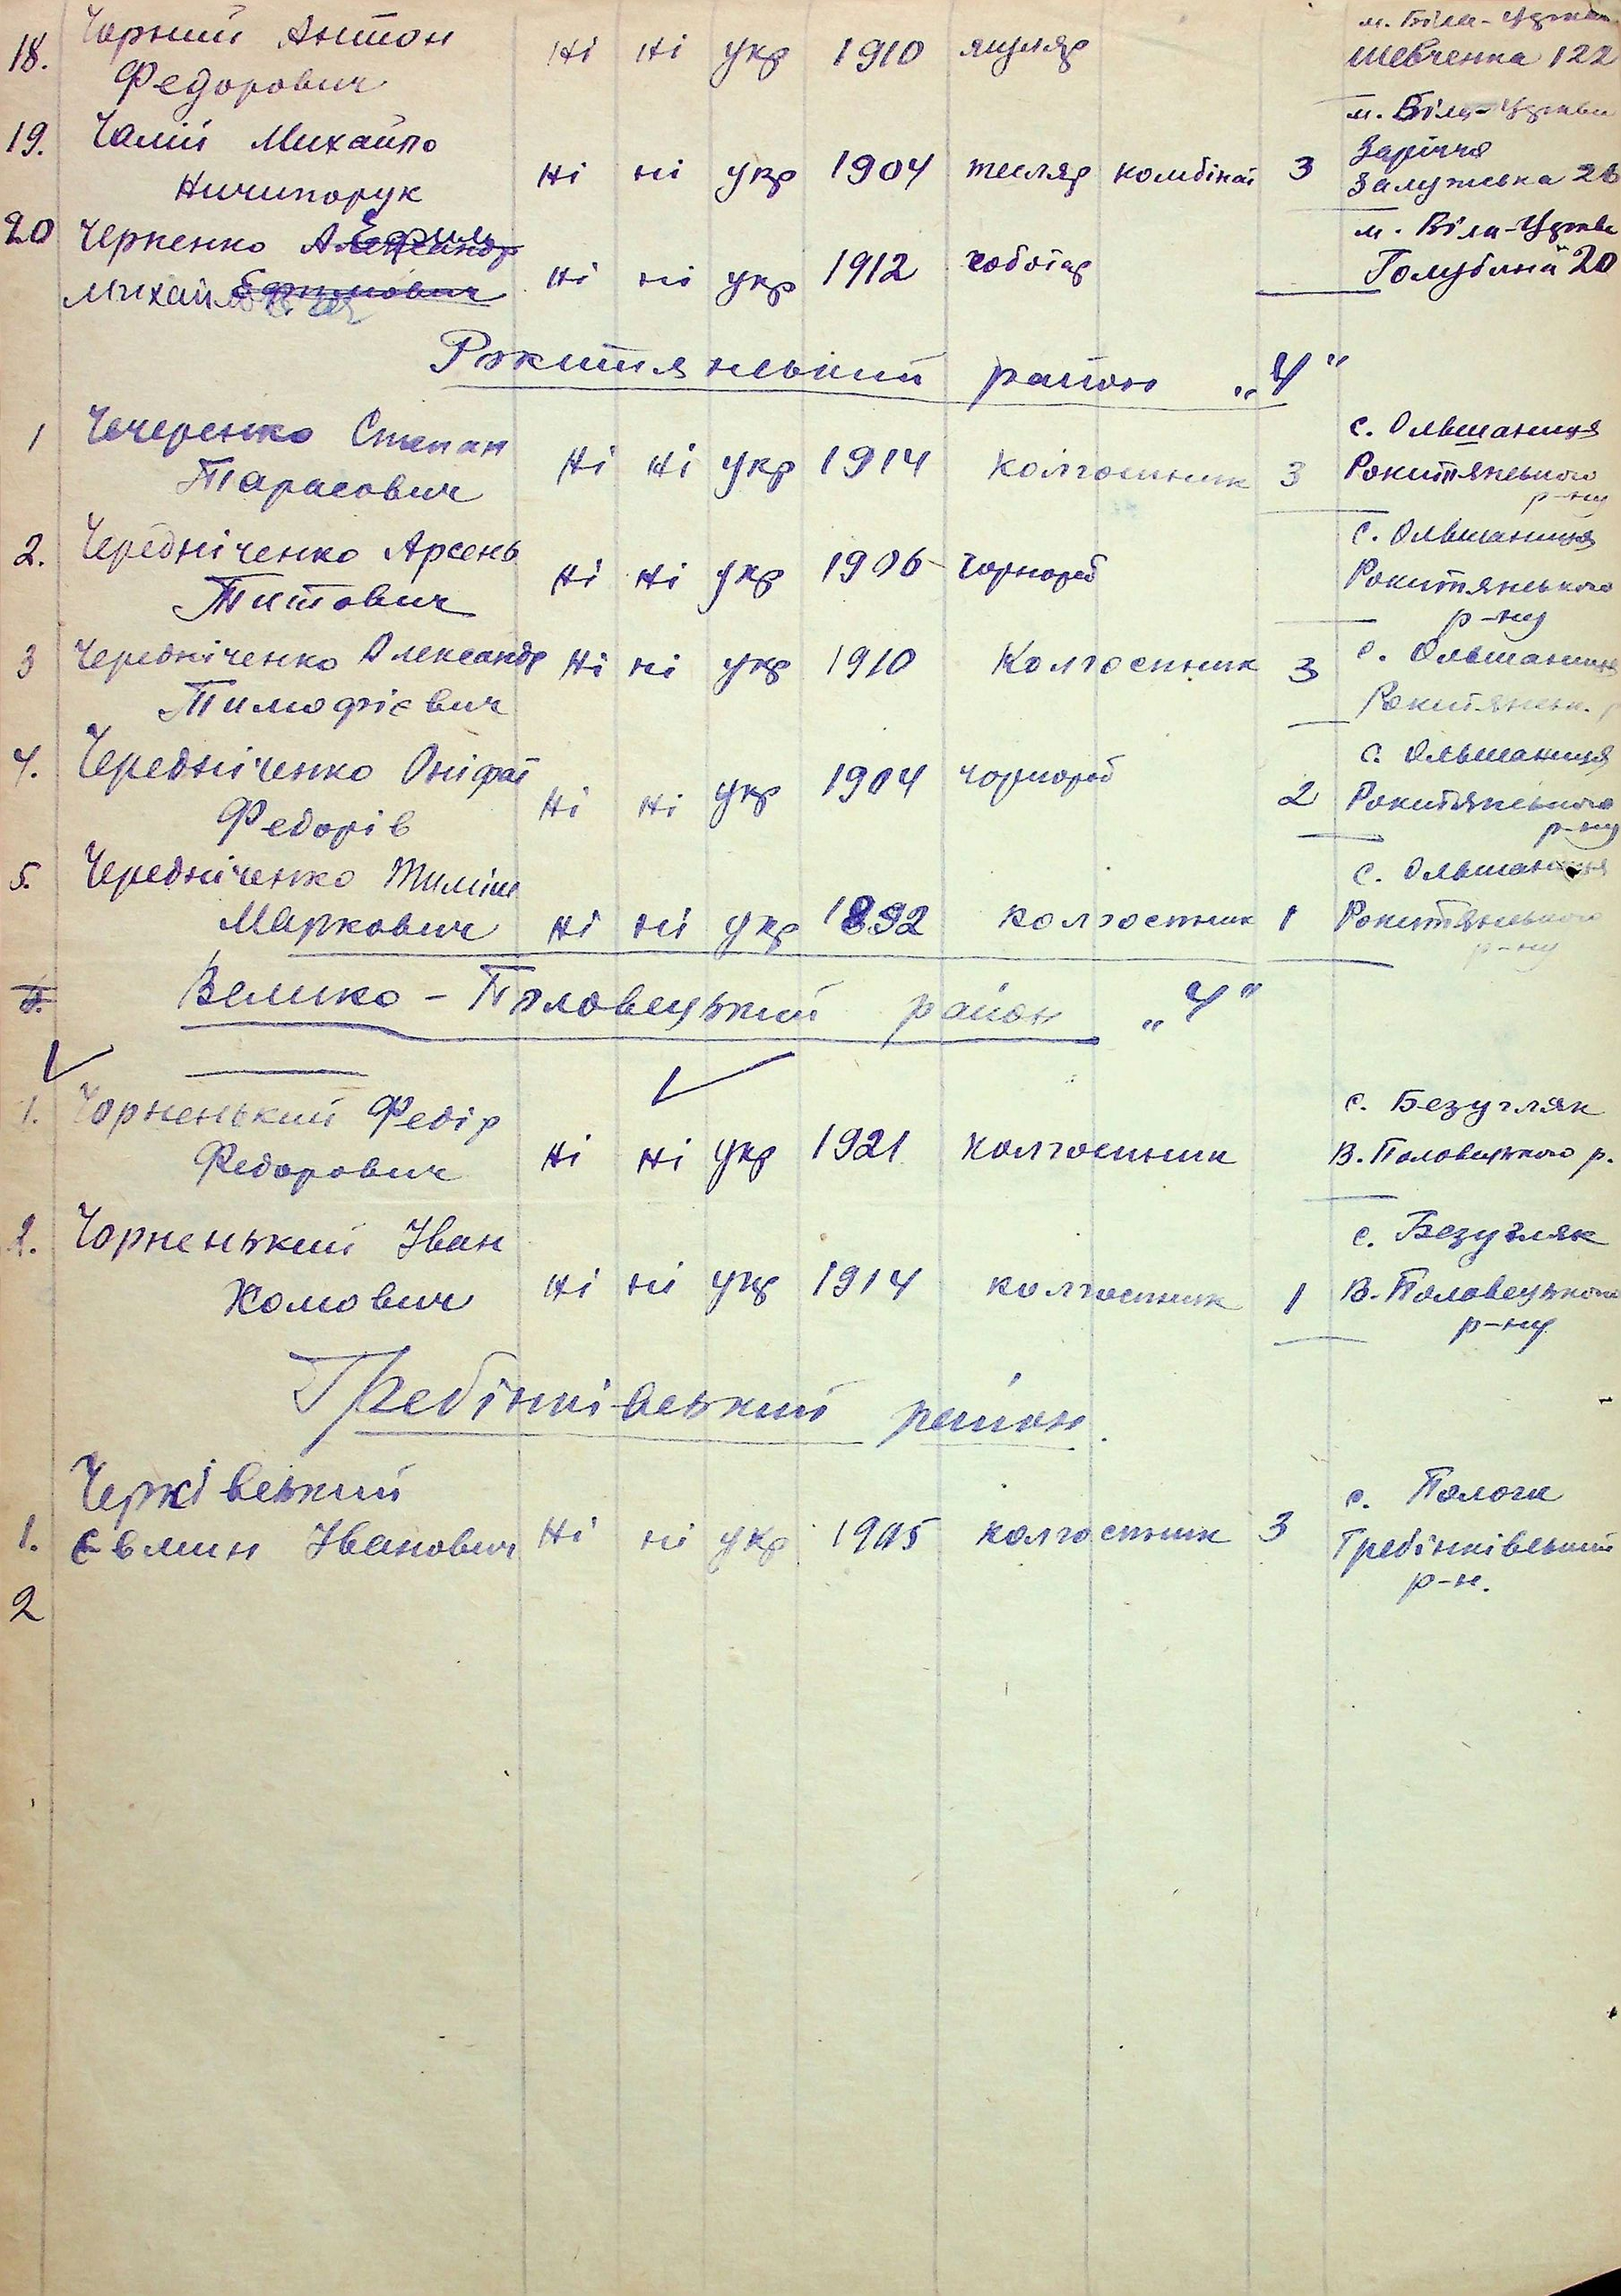 18. Чорний Антон Федорович ні ні укр 1910 муляр м. Біла-Церква Шевченка 122
19. Чалий Михайло Ничипорук ні ні укр 1904 тесляр комбінат 3 м. Біла-Церква Заріччя Залузська 28
20 Черненко Михайло ні ні укр 1912 чоботар м. Біла-Церква Голубина 20
Рокитянський район „Ч"
1 Чечеренко Степан Тарасович ні ні укр 1914 колгоспник 3 с. Ольшаниця Рокитянського р-ну
2. Чередніченко Арсень Титович ні ні укр 1906 чорнороб с. Ольшаниця Рокитянського р-ну
3 Чередніченко Олександр Тимофієвич ні ні укр 1910 Колгоспник 3 с. Ольшаниця Рокитянськ.
4. Чередніченко Оніфат Федорів ні ні укр 1904 чорнороб 2 с. Ольшаниця Рокитянського р-ну
5. Чередніченко Тиміш Маркович ні ні укр 1892 колгоспник 1 с. Ольшаниця Рокитянського р-ну
Велико-Половецький район „Ч"
1. Чорненький Федір Федорович ні ні укр 1921 колгоспник с. Безугляк В. Половецького р.
2. Чорненький Іван Хомович ні ні укр 1914 колгоспник 1 с. Безугляк В. Половецького р-ну
Гребінківський район.
1. Черківський Євмин Іванович ні ні укр 1905 колгоспник 3 с. Пологи Гребінківський р-н.
2